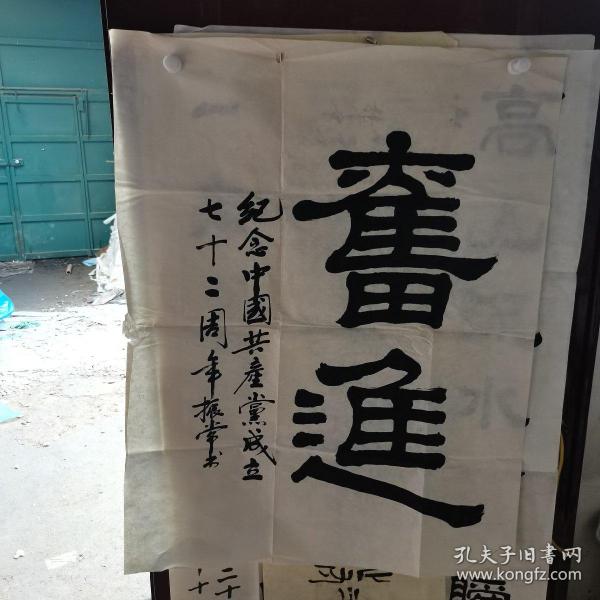 奮進
紀念中國共產黨成立
七十二周年振常书
高
水
二十
十
孔夫子旧书网
www.kongfz.com